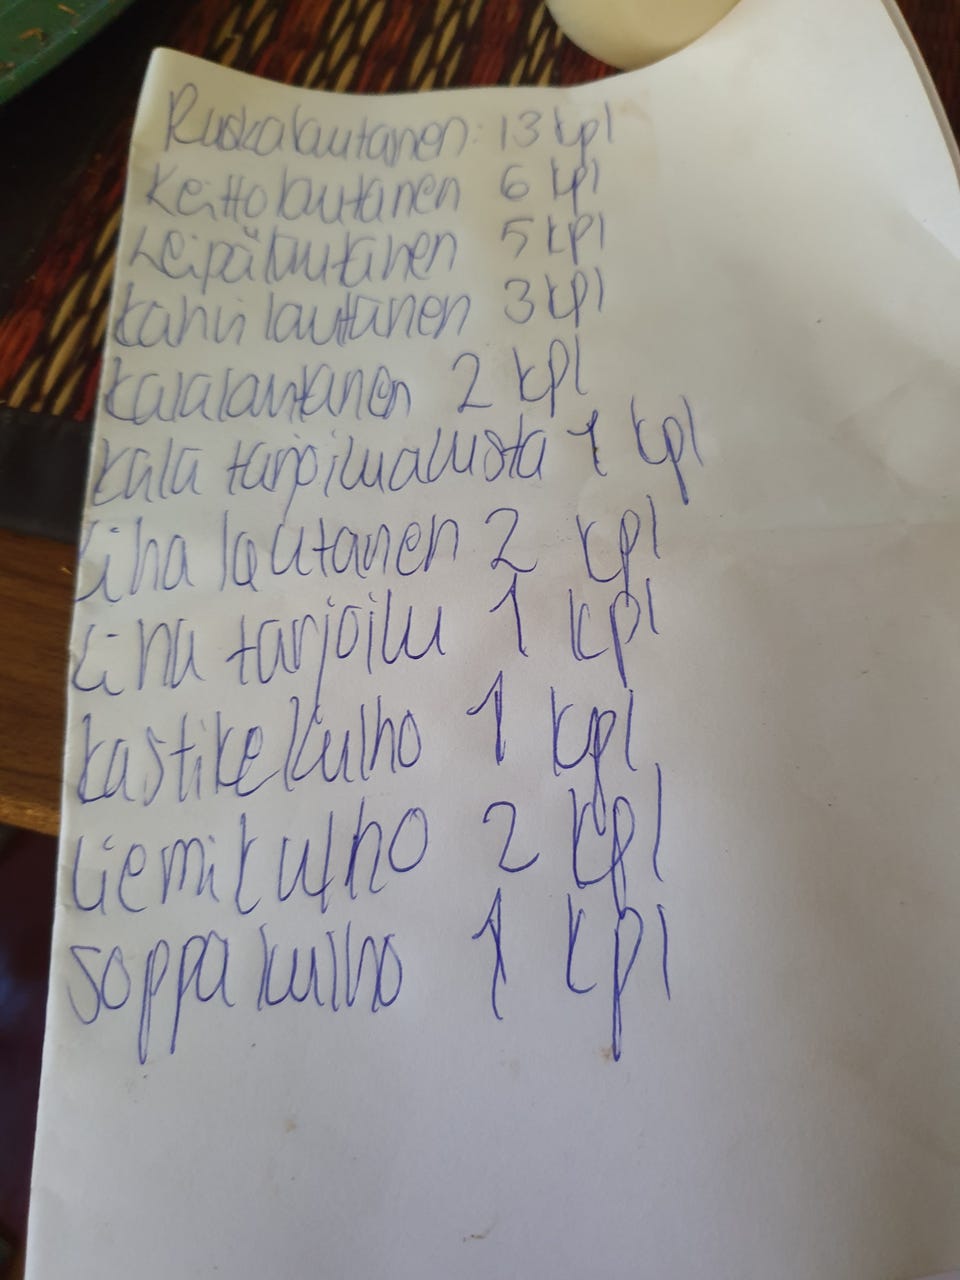 Ruskalautanen: 13 kpl
Keittolautanen 6 kpl
Leipälautanen 5 kpl
kahvilautanen 3 kpl
kalalautanen 2 kpl
kala tarjoilualusta 1 kpl
Liha lautanen 2 kpl
Liha tarjoilu 1 kpl
kastikekulho 1 kpl
Liemikulho 2 kpl
soppakulho 1 kpl